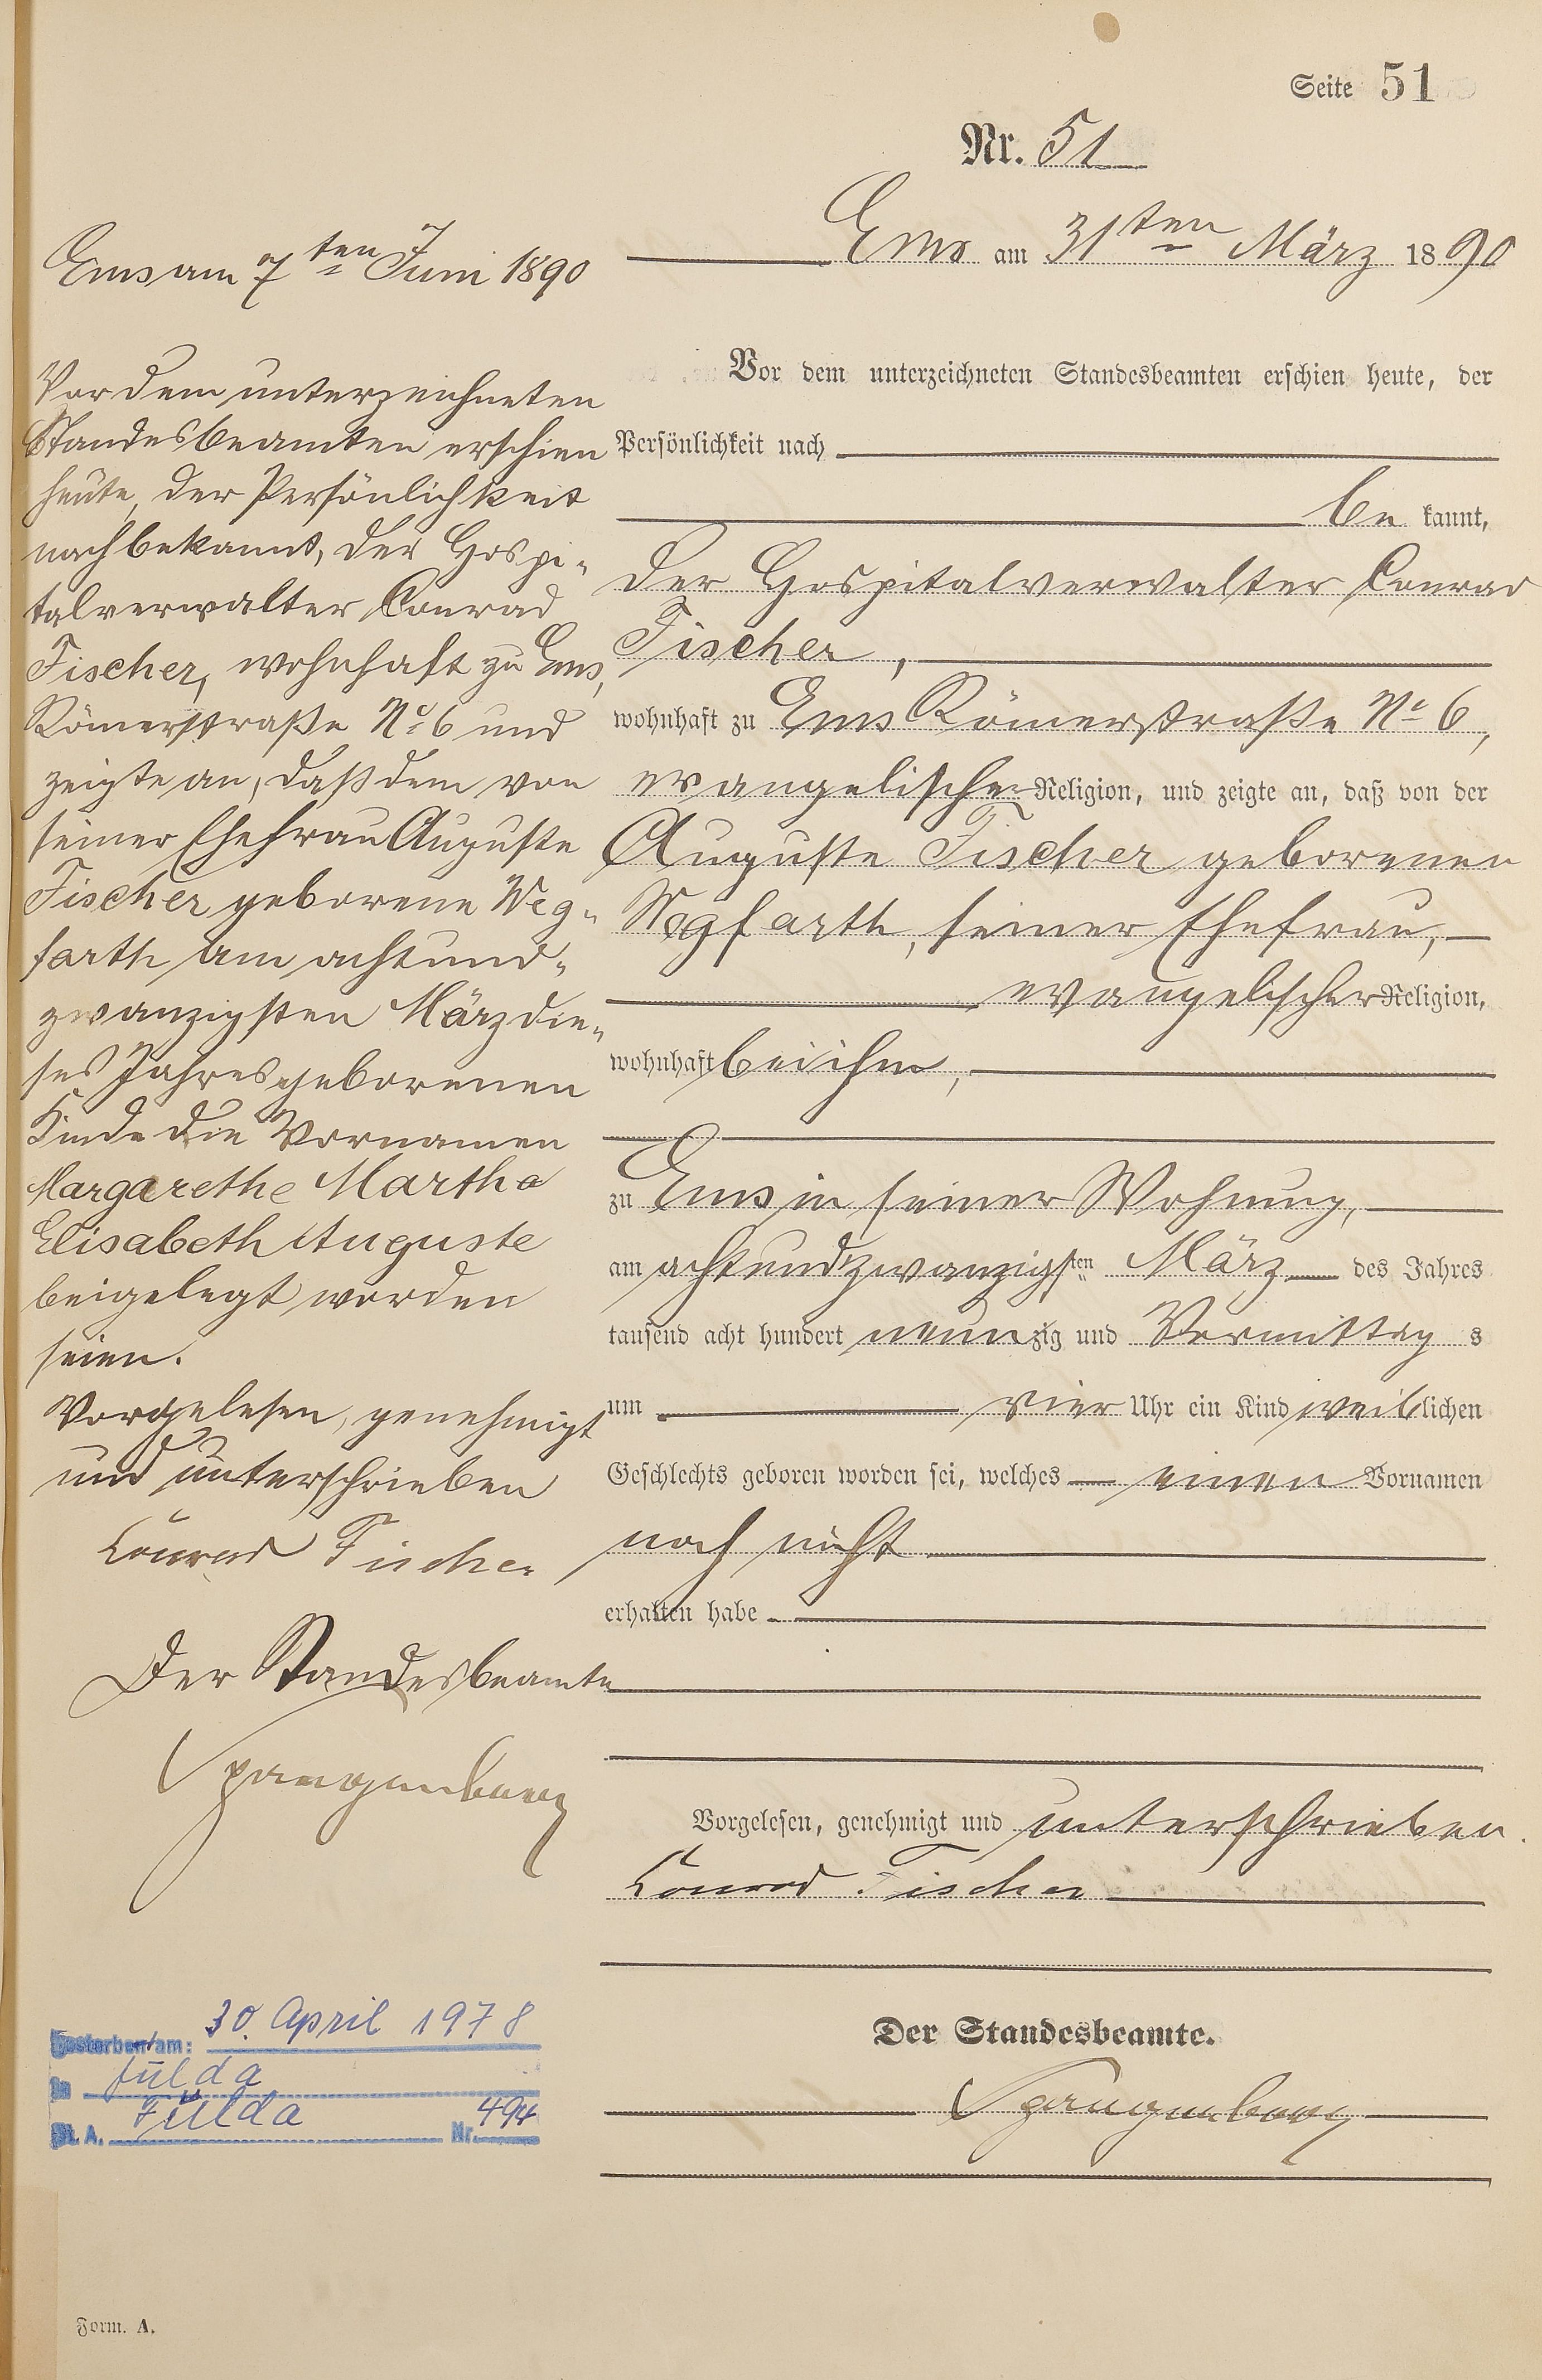 Seite 51
Nr. 51
Ems am 31ten März 1890
Vor dem unterzeichneten Standesbeamten erschien heute, der
Persönlichkeit nach
be kannt,
der Hospitalverwalter Conrad
Fischer,
wohnhaft zu Ems Römerstraße No 6,
evangelischer Religion, und zeigte an, daß von der
Auguste Fischer geborenen
Wegfarth, seiner Ehefrau,
evangelischer Religion,
wohnhaft bei ihm,
zu Ems in seiner Wohnung,
am achtundzwanzigsten März des Jahres
tausend acht hundert neunzig und Vormittag s
um vier Uhr ein Kind weiblichen
Geschlechts geboren worden sei, welches einen Vornamen
noch nicht
erhalten habe
Vorgelesen, genehmigt und unterschrieben.
Conrad Fischer
Der Standesbeamte.
Spangenberg
Ems am 7ten Juni 1890
Vor dem unterzeichneten
Standesbeamten erschien
heute, der Persönlichkeit
nach bekannt, der Hospi-
talverwalter Conrad
Fischer, wohnhaft zu Ems,
Römerstraße No 6 und
zeigte an, daß dem von
seiner Ehefrau Auguste
Fischer geborene Weg-
farth am achtund-
zwanzigsten März die-
ses Jahres geborenen
Kinde die Vornamen
Margarethe Martha
Elisabeth Auguste
beigelegt worden
seien.
Vorgelesen, genehmigt
und unterschrieben
Conrad Fischer
Der Standesbeamte
Spangenberg
Gestorben am: 30. April 1978
In Fulda
St. A. Fulda Nr. 494
Form. A.